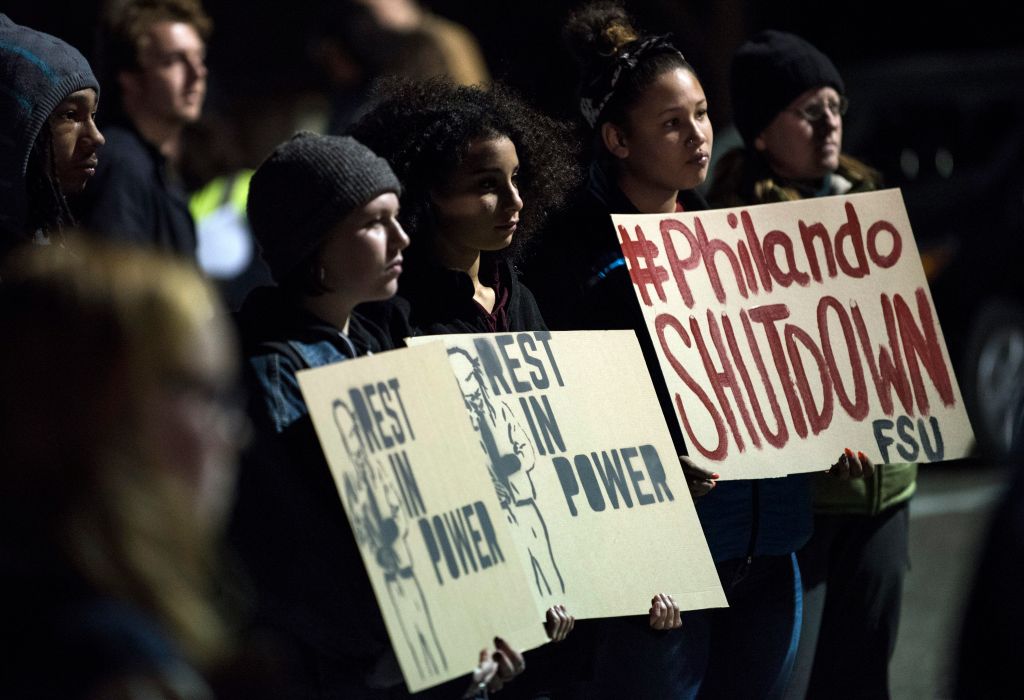 REST
IN
POWER
REST
IN
POWER
#Philando
SHUTDOWN
FSU